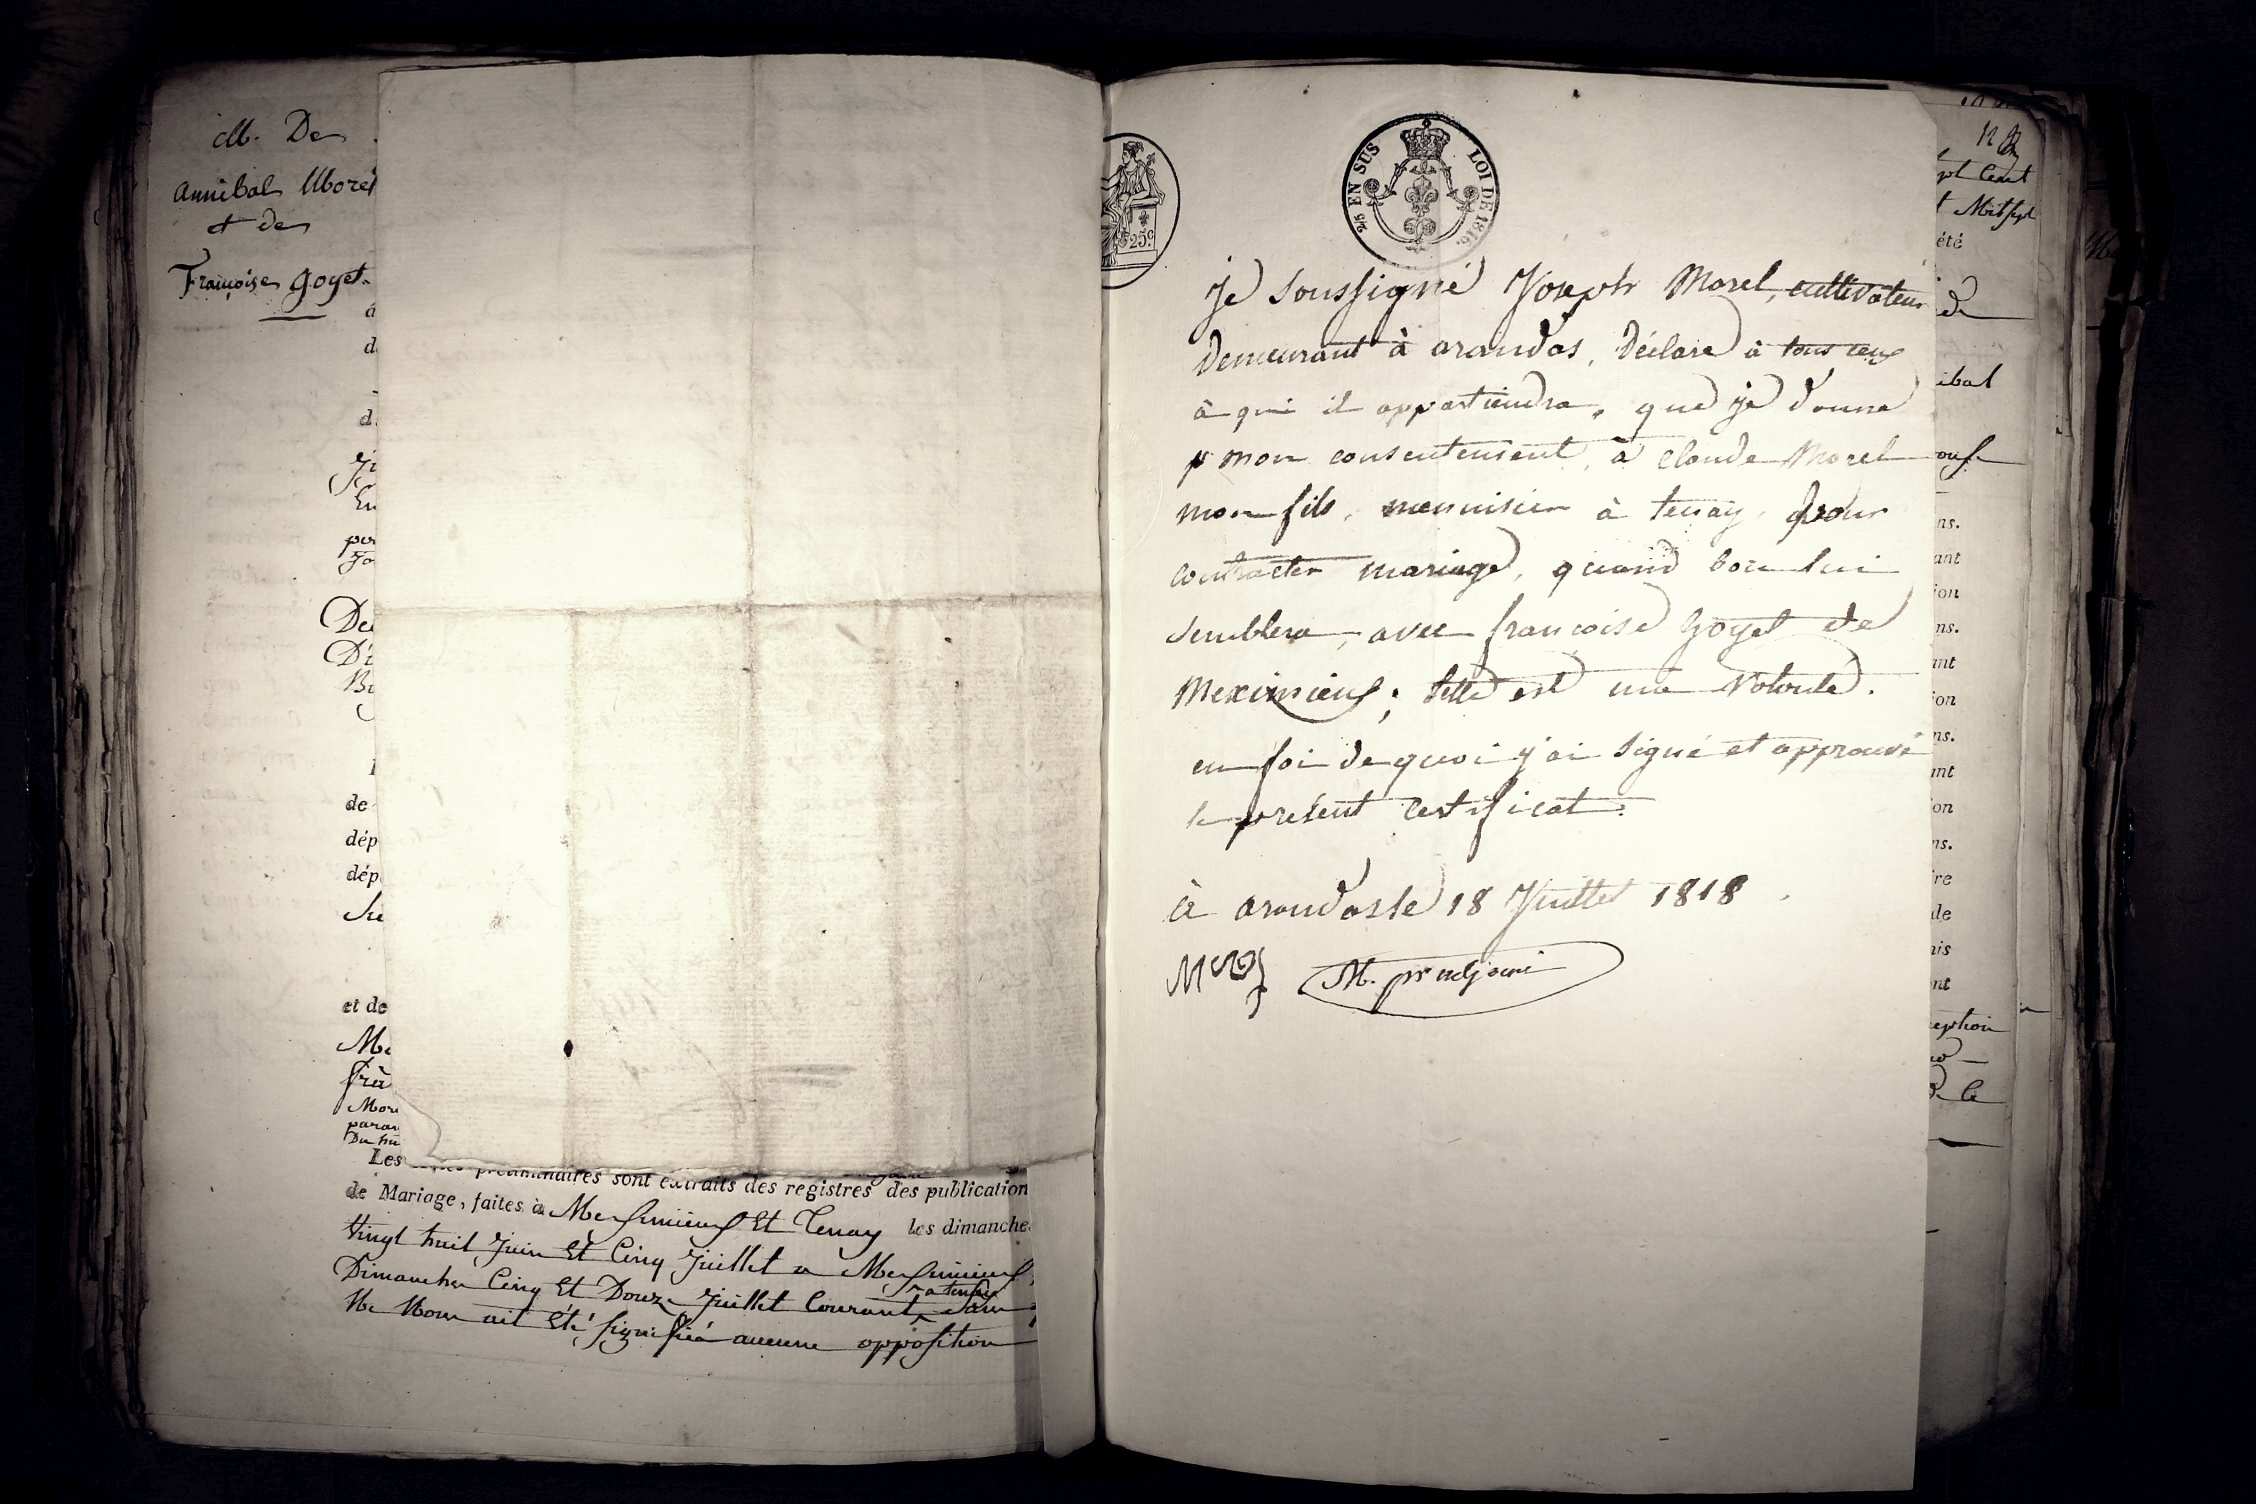 M. De
annibal Morel
et de
Françoise Goyet.
a
d
d
En
De
de
dép
dép
et de
Mor
Les preliminaires sont extraits des registres des publication
de Mariage, faites à Meximieux Et Tenay les dimanche
Vingt huit Juin Et Cinq Juillet a Meximieux
Dimanches Cinq Et Douze Juillet Courant a tenay
Ne Nous ait Eté signifié aucune opposition
25c.
2/5 EN SUS LOI DE 1816.
je soussigné Joseph Morel, cultivateur
Demeurant à arandas, Déclare à tous ceux
à qui il appartiendra, que je donne
mon consentement, à Claude Morel
mon fils, menuisier à tenay, pour
contracter mariage, quand bon lui
semblera, avec françoise Goyet de
Meximieux; telle est ma volonté.
en foi de quoi j'ai signé et approuvé
le présent certificat.
à arandas le 18 Juillet 1818
M.
12
Cent
été
de
ibal
ns.
ant
ion
ns.
ant
ion
ns.
ant
ion
ns.
re
de
nis
nt
eption